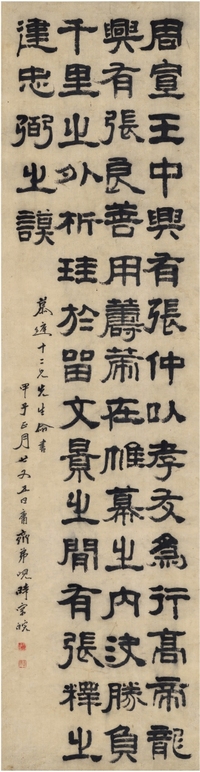 周宣王中興有張仲以孝友為行高帝龍
興有張良善用籌策在帷幕之內決勝負
千里之外析珪於留文景之間有張釋之
建忠弼之謨
十二兄先生書
甲子正月廿又五日弟時